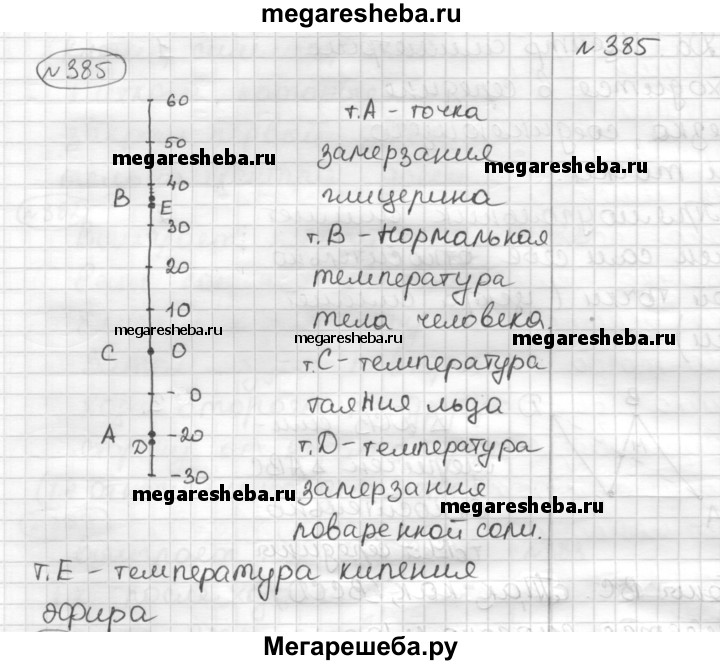 megaresheba.ru
№ 385
№ 385
60
50
40
B
E
30
20
10
C 0
- 0
A -20
D
-30
т.А - точка
замерзания
глицерина
т.В - Нормальная
температура
тела человека.
т.С - температура
таяния льда
т.D - температура
замерзания
поваренной соли.
т.Е - температура кипения
эфира
megaresheba.ru
megaresheba.ru
megaresheba.ru
megaresheba.ru
megaresheba.ru
megaresheba.ru
Мегарешеба.ру